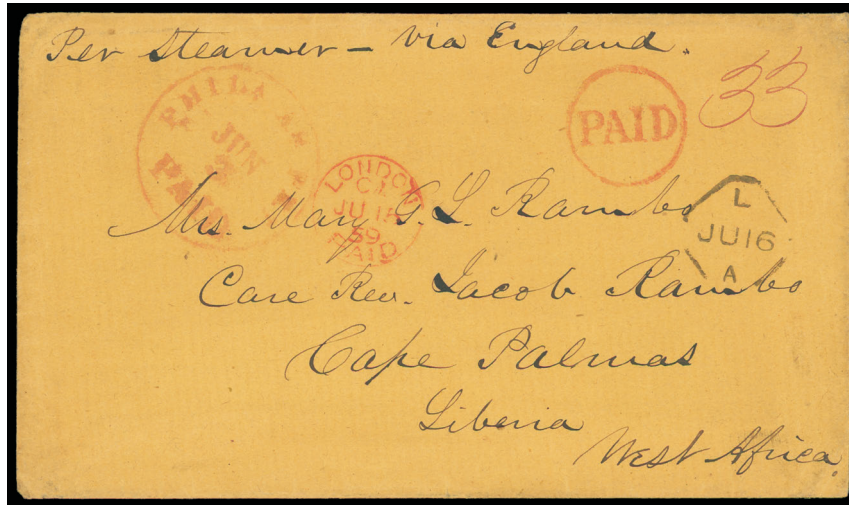 Per Steamer – via England.
PAID
33
JUN
PAID
LONDON
JU 16
59
PAID
L
JU16
A
Mrs. Mary G. L. Rambo
Care Rev. Jacob Rambo
Cape Palmas
Liberia
West Africa.